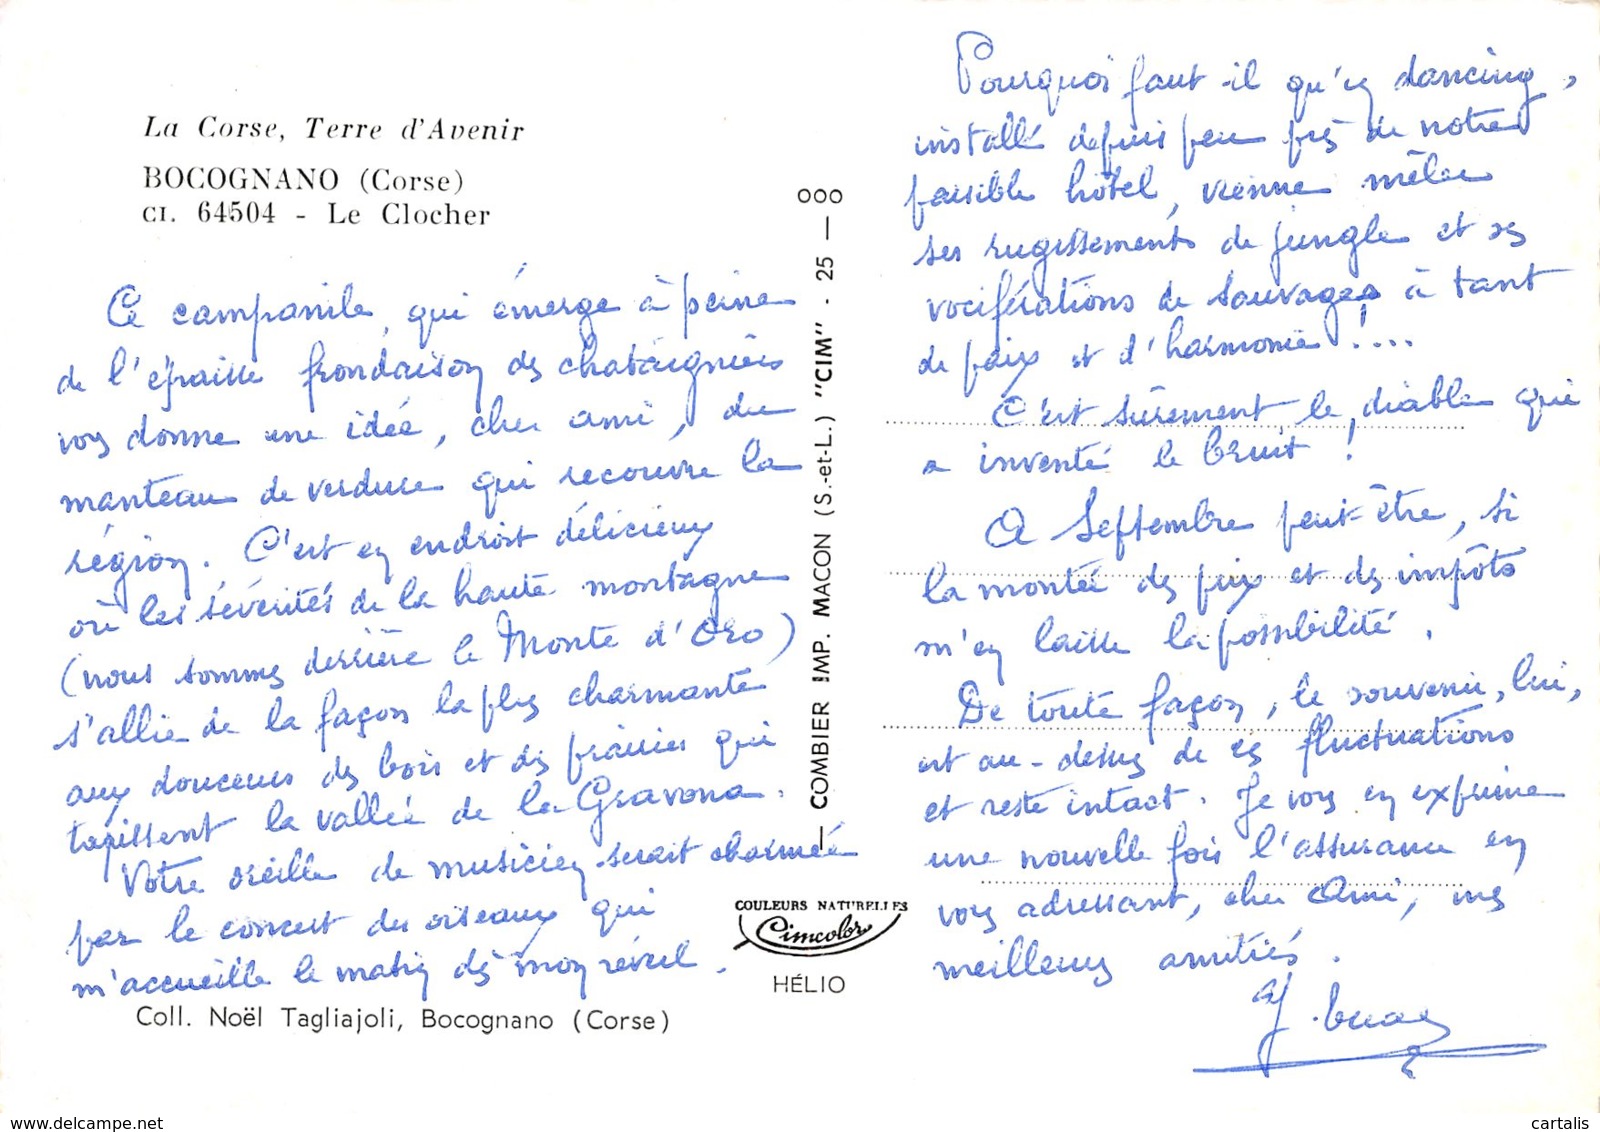 La Corse, Terre d'Avenir
BOCOGNANO (Corse)
CI. 64504 - Le Clocher
Ce campanile, qui émerge à peine
de l'épaisse frondaison des chataigniers
vous donne une idée, cher ami, du
manteau de verdure qui recouvre la
région. C'est un endroit délicieux
où les sévérités de la haute montagne
(nous sommes derrière le Monte d'Oro)
s'allie de la façon la plus charmante
aux douceurs des bois et des prairies qui
tapissent la vallée de la Gravona.
Votre oreille de musicien serait charmée
par le concert des oiseaux qui
m'accueille le matin dès mon réveil.
Coll. Noël Tagliajoli, Bocognano (Corse)
COMBIER IMP. MACON (S.-et-L.) "CIM" - 25 — 000
COULEURS NATURELLES
Cimcolor
HÉLIO
Pourquoi faut-il qu'un dancing,
installé depuis peu près de notre
paisible hôtel, vienne mêler
ses rugissements de jungle et ses
vociférations de sauvages à tant
de paix et d'harmonie !...
C'est sûrement le diable qui
a inventé le bruit !
A Septembre peut-être, si
la montée des prix et des impôts
m'en laisse la possibilité.
De toute façon, le souvenir, lui,
est au-dessus de ces fluctuations
et reste intact. Je vous en exprime
une nouvelle fois l'assurance en
vous adressant, cher Ami, mes
meilleures amitiés.
cartalis